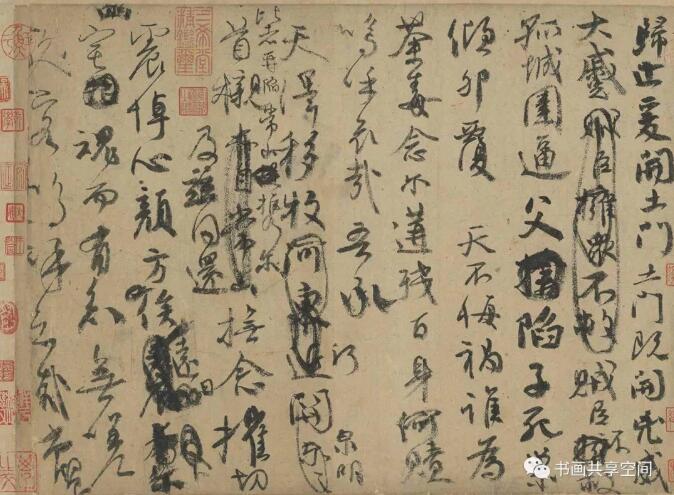 歸止爰開土門土門既開凶威
大蹙賊臣擁眾不救賊臣不救
孤城圍逼父陷子死巢
傾卵覆天不悔禍誰為
荼毒念爾遘殘百身何贖
嗚呼哀哉吾承
天澤移牧河關泉明
比者再陷常山攜爾
首櫬及茲同還撫念摧切
震悼心顏方俟遠日
宅魂而有知無嗟
久客嗚呼哀哉尚饗
书画共享空间